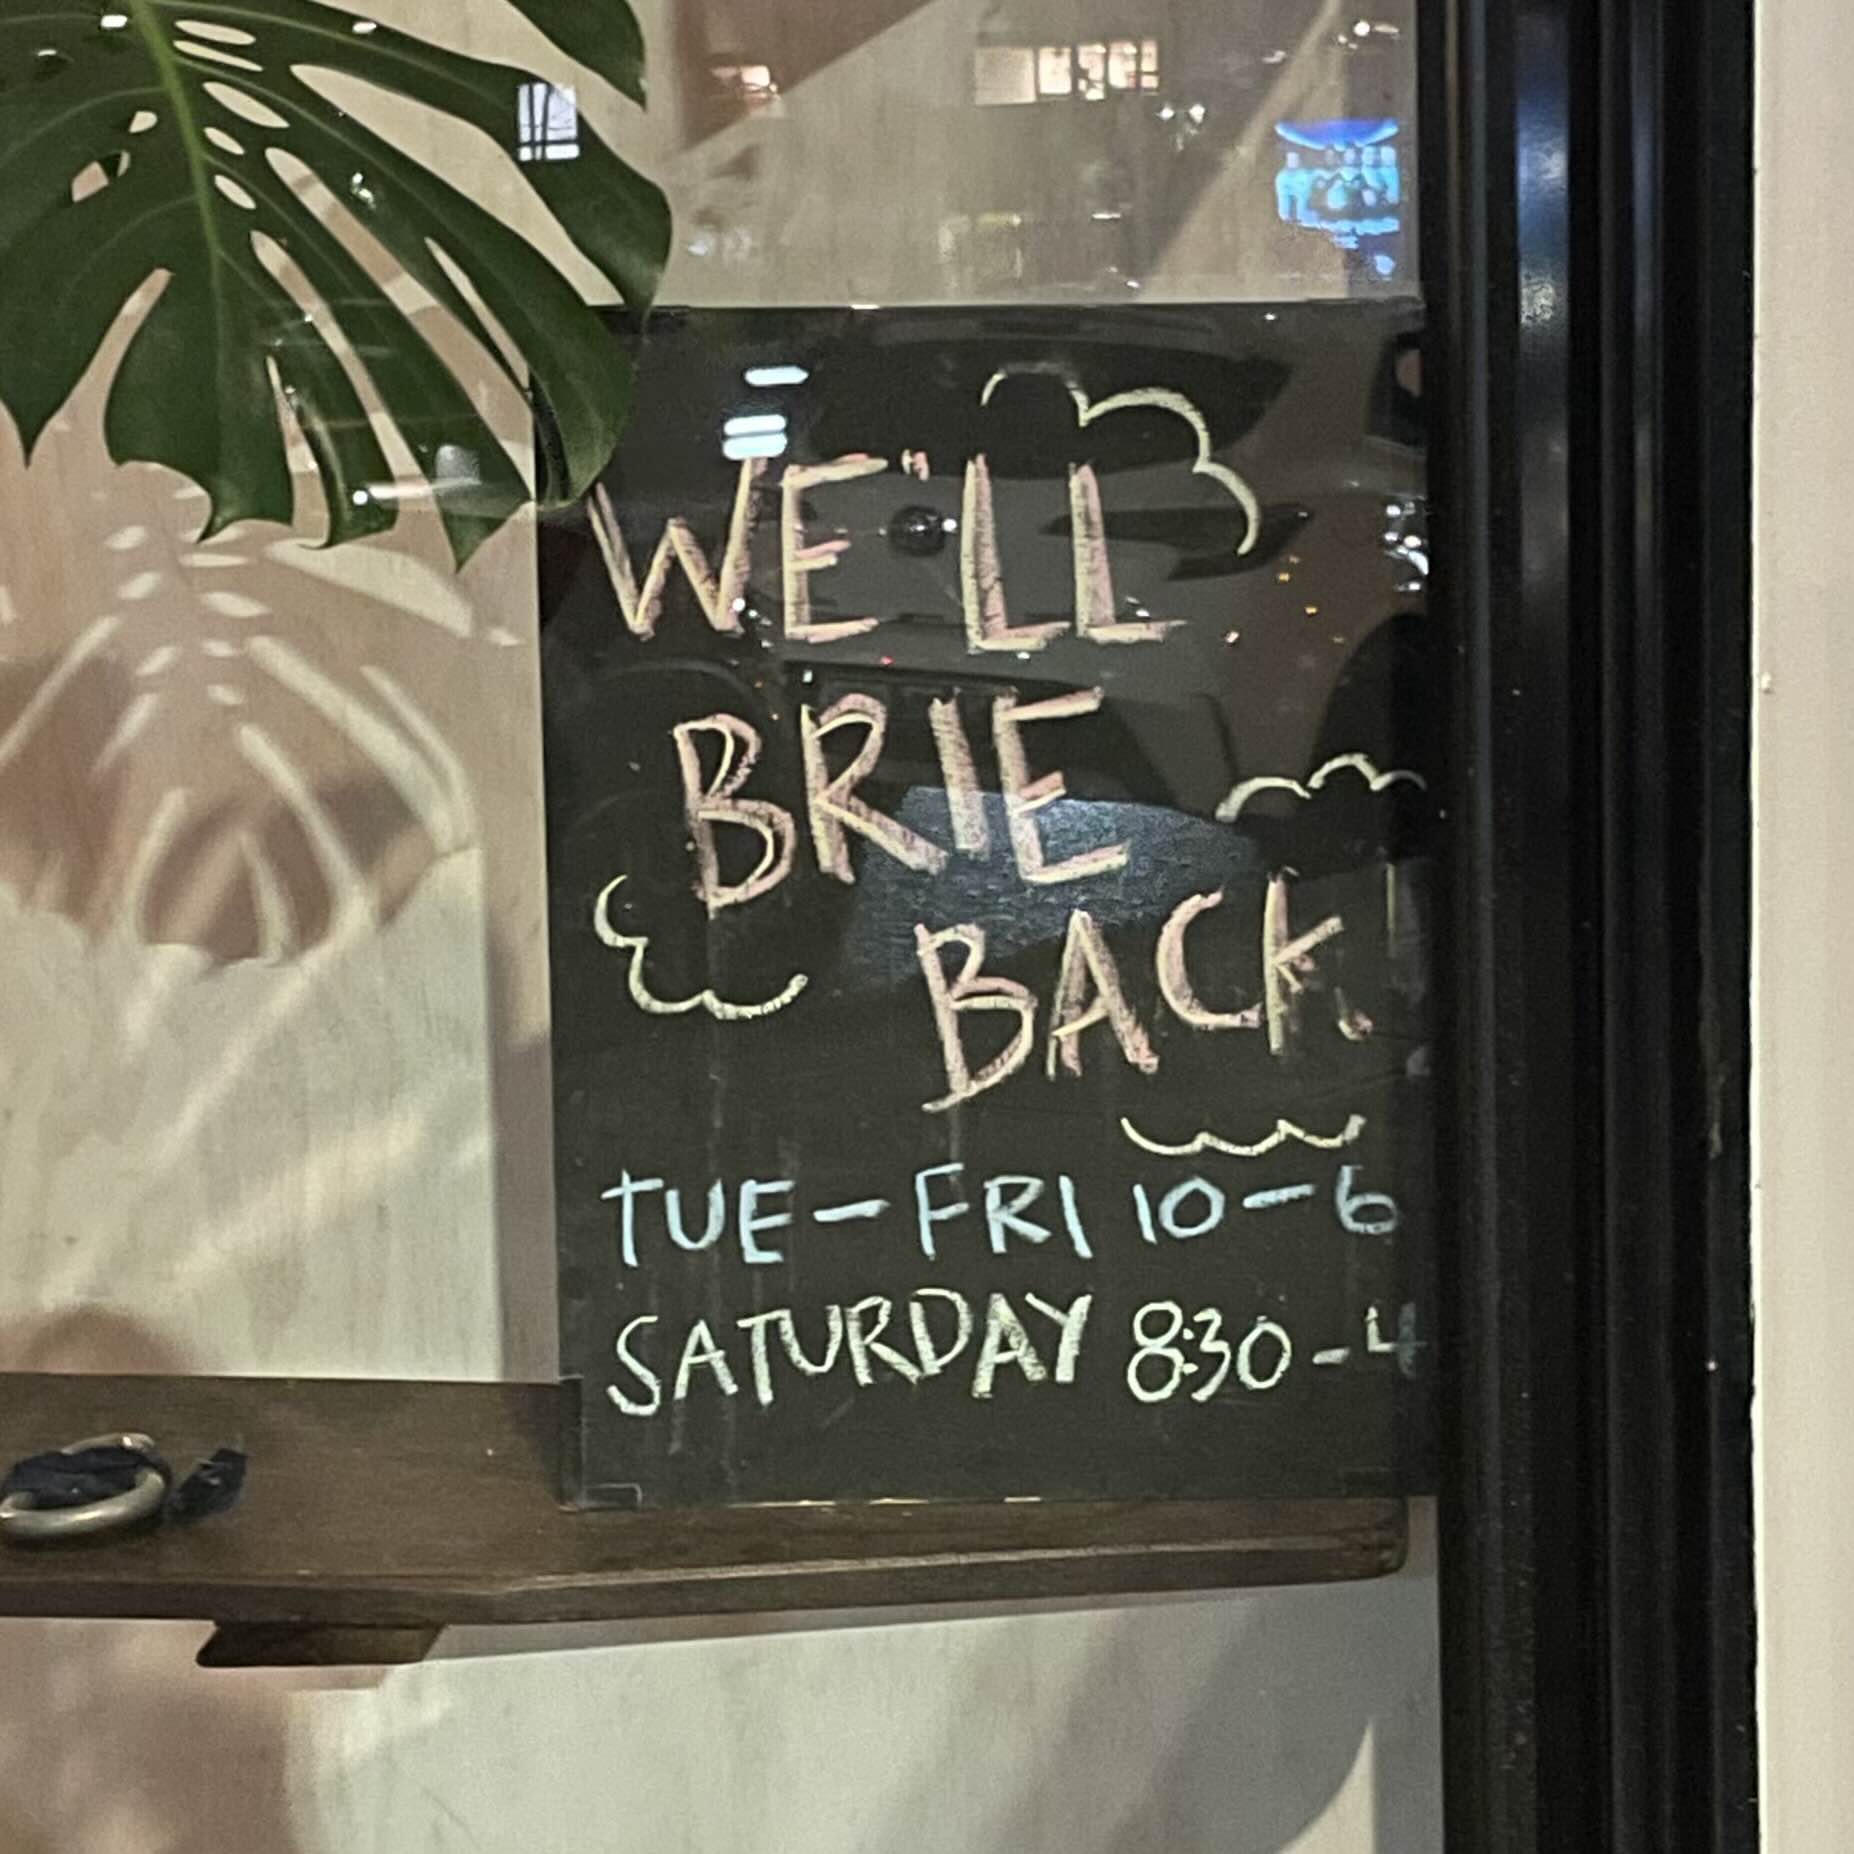 WE'LL
BRIE
BACK!
TUE-FRI 10-6
SATURDAY 8:30-4